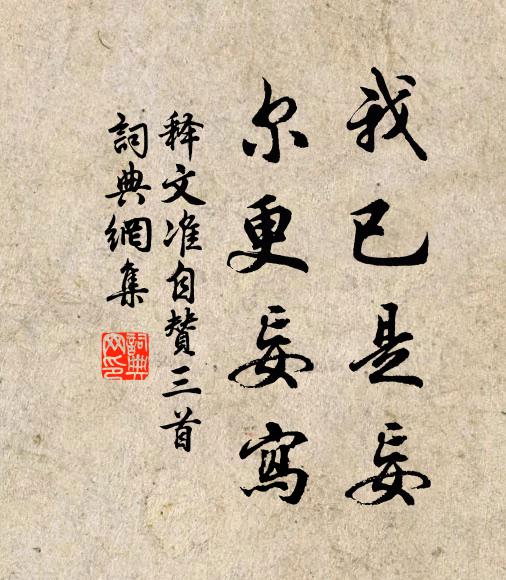 我已是妄
尔更妄寫
释文准自赞三首
詞典網集
詞典
网印